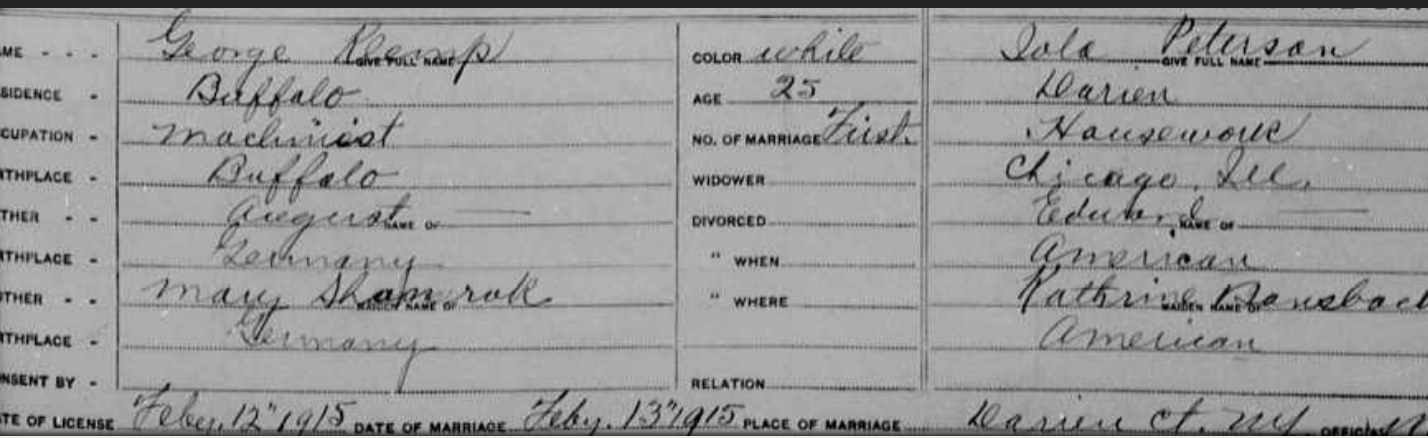 ME - - - George Klemp GIVE FULL NAME COLOR white Iola Peterson GIVE FULL NAME
SIDENCE - Buffalo AGE 25 Darien
CUPATION - Machinist NO. OF MARRIAGE First. Housework
THPLACE - Buffalo WIDOWER Chicago, Ill.
THER - - August — NAME OF DIVORCED Edward — NAME OF
THPLACE - Germany " WHEN American
OTHER - - Mary Shamrok MAIDEN NAME OF " WHERE Kathrine MAIDEN NAME OF
THPLACE - Germany American
NSENT BY - RELATION
TE OF LICENSE Feby. 12" 1915 DATE OF MARRIAGE Feby. 13" 1915 PLACE OF MARRIAGE Darien Ct. NY OFFICIAL